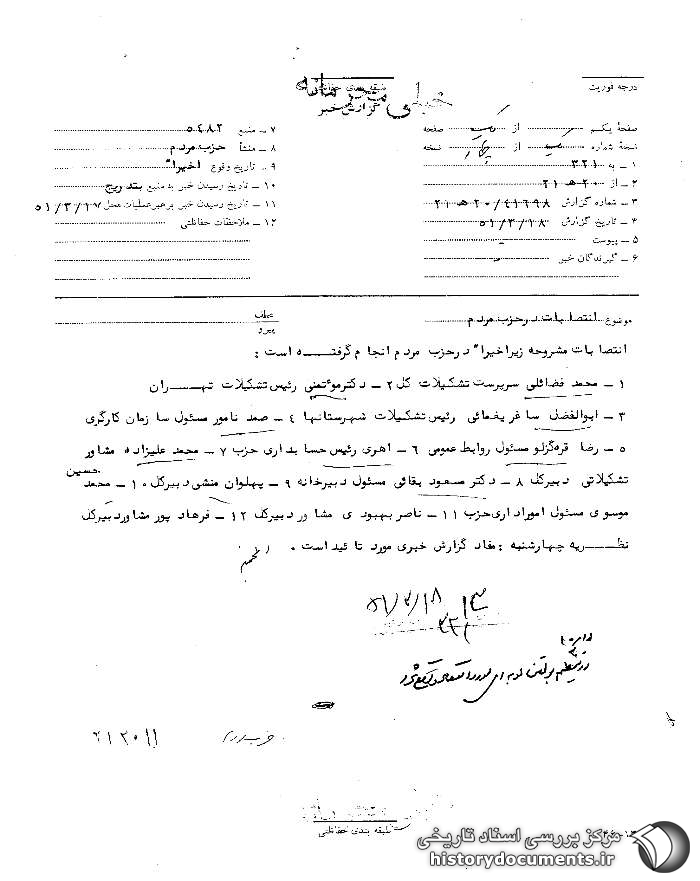 درجه فوریت
طبقه بندی حفاظتی
خیلی محرمانه
گزارش خبر
صفحهٔ یکم از یک صفحه
نسخهٔ شماره از چهار نسخه
۱ - به ۳۲۱
۲ - از ۲۰ هـ ۲۱
۳ - شماره گزارش ۲۰/۴۱۶۹۸ هـ ۲۱
۴ - تاریخ گزارش ۵۱/۳/۱۸
۵ - پیوست
۶ - گیرندگان خبر
۷ - منبع ۵۴۸۲
۸ - منشأ حزب مردم
۹ - تاریخ وقوع اخیرا"
۱۰ - تاریخ رسیدن خبر به منبع بتدریج
۱۱ - تاریخ رسیدن خبر برهبر عملیات محل ۵۱/۳/۱۷
۱۲ - ملاحظات حفاظتی
موضوع انتصابات در حزب مردم
عطف
پیرو
انتصابات مشروحه زیر اخیرا" در حزب مردم انجام گرفته است :
۱ - محمد فضائلی سرپرست تشکیلات کل ۲ - دکتر موتمنی رئیس تشکیلات تهران
۳ - ابوالفضل ساغریغمائی رئیس تشکیلات شهرستانها ۴ - صمد نامور مسئول سازمان کارگری
۵ - رضا قره گزلو مسئول روابط عمومی ۶ - اهری رئیس حسابداری حزب ۷ - محمد علیزاده مشاور
تشکیلاتی دبیرکل ۸ - دکتر مسعود بقائی مسئول دبیرخانه ۹ - پهلوان منشی دبیرکل ۱۰ - محمد حسین
موسوی مسئول اموراداری حزب ۱۱ - ناصر بهبودی مشاور دبیرکل ۱۲ - فرهاد پور مشاور دبیرکل
نظریه چهارشنبه : مفاد گزارش خبری مورد تائید است .
۵۱/۳/۱۸
۳۲۱
۲۱۲۰۱۱
طبقه بندی حفاظتی
مرکز بررسی اسناد تاریخی
historydocuments.ir